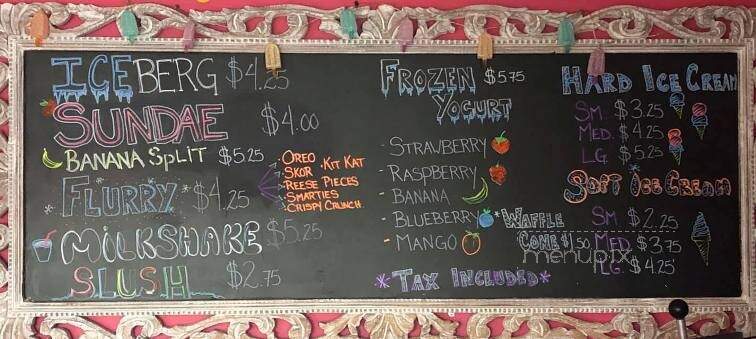 ICEBERG $4.25
SUNDAE $4.00
BANANA SPLIT $5.25
FLURRY $4.25
· OREO · KIT KAT
· SKOR
· REESE PIECES
· SMARTIES
· CRISPY CRUNCH
MILKSHAKE $5.25
SLUSH $2.75
FROZEN $5.75
YOGURT
- STRAWBERRY
- RASPBERRY
- BANANA
- BLUEBERRY
- MANGO
*WAFFLE
CONE $1.50
*TAX INCLUDED*
HARD ICE CREAM
SM. $3.25
MED. $4.25
LG. $5.25
SOFT ICE CREAM
SM. $2.25
MED $3.75
LG $4.25
menupix